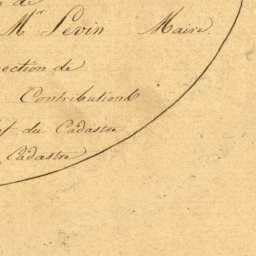 de
Mr Levin Maire
ection de
Contributions
ef du Cadastre
Cadastre